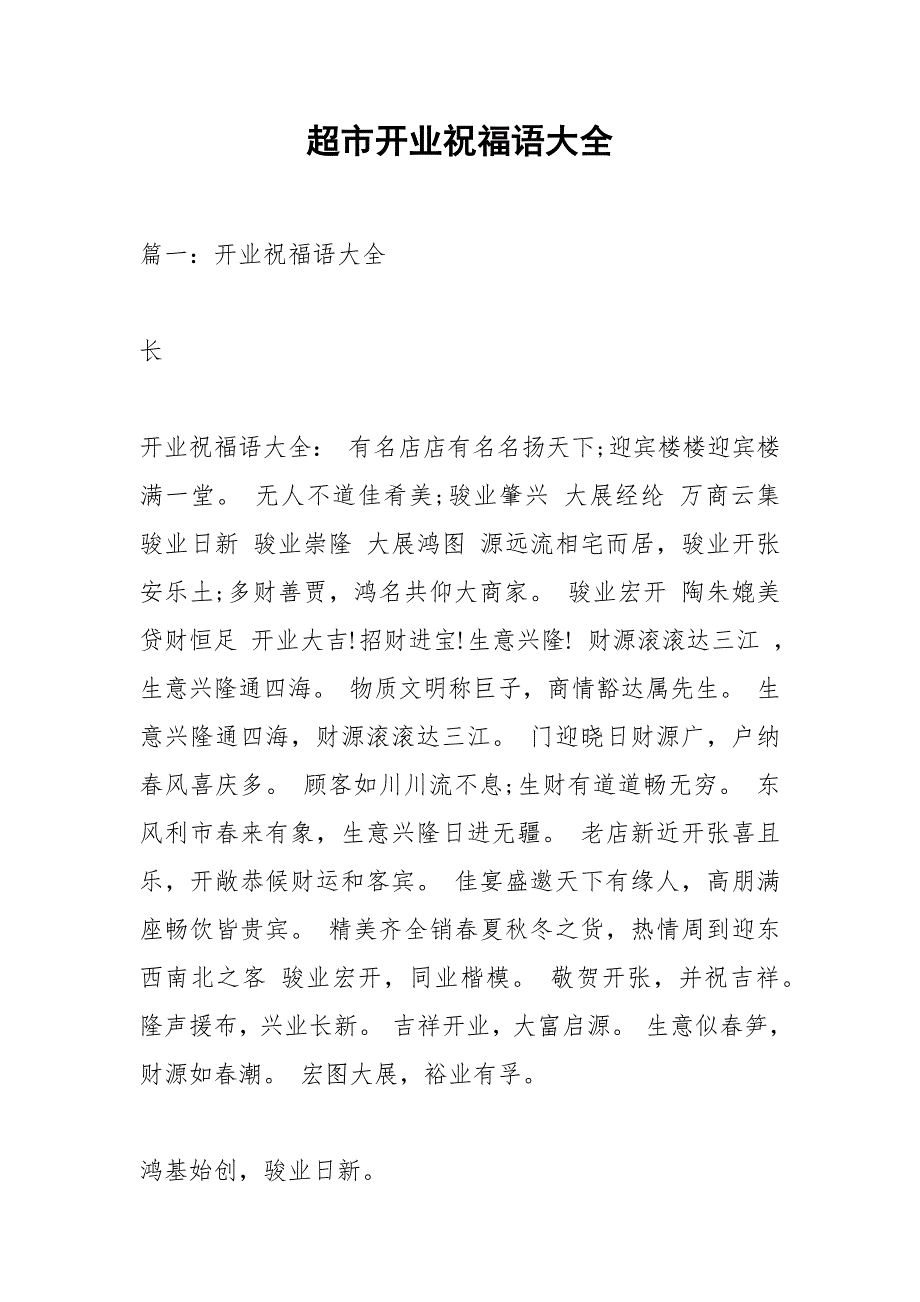 超市开业祝福语大全
篇一：开业祝福语大全
长
开业祝福语大全： 有名店店有名名扬天下;迎宾楼楼迎宾楼
满一堂。 无人不道佳肴美;骏业肇兴 大展经纶 万商云集
骏业日新 骏业崇隆 大展鸿图 源远流相宅而居，骏业开张
安乐土;多财善贾，鸿名共仰大商家。 骏业宏开 陶朱媲美
贷财恒足 开业大吉!招财进宝!生意兴隆! 财源滚滚达三江 ，
生意兴隆通四海。 物质文明称巨子，商情豁达属先生。 生
意兴隆通四海，财源滚滚达三江。 门迎晓日财源广，户纳
春风喜庆多。 顾客如川川流不息;生财有道道畅无穷。 东
风利市春来有象，生意兴隆日进无疆。 老店新近开张喜且
乐，开敞恭候财运和客宾。 佳宴盛邀天下有缘人，高朋满
座畅饮皆贵宾。 精美齐全销春夏秋冬之货，热情周到迎东
西南北之客 骏业宏开，同业楷模。 敬贺开张，并祝吉祥。
隆声援布，兴业长新。 吉祥开业，大富启源。 生意似春笋，
财源如春潮。 宏图大展，裕业有孚。
鸿基始创，骏业日新。